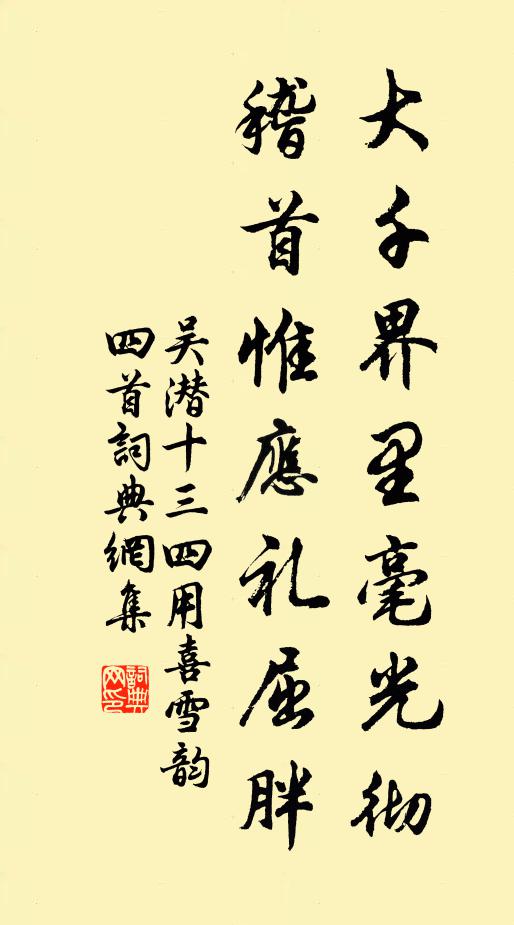 大千界里毫光彻
稽首惟應礼屈胖
吴潜十三四用喜雪韵
四首詞典網集
詞典網印